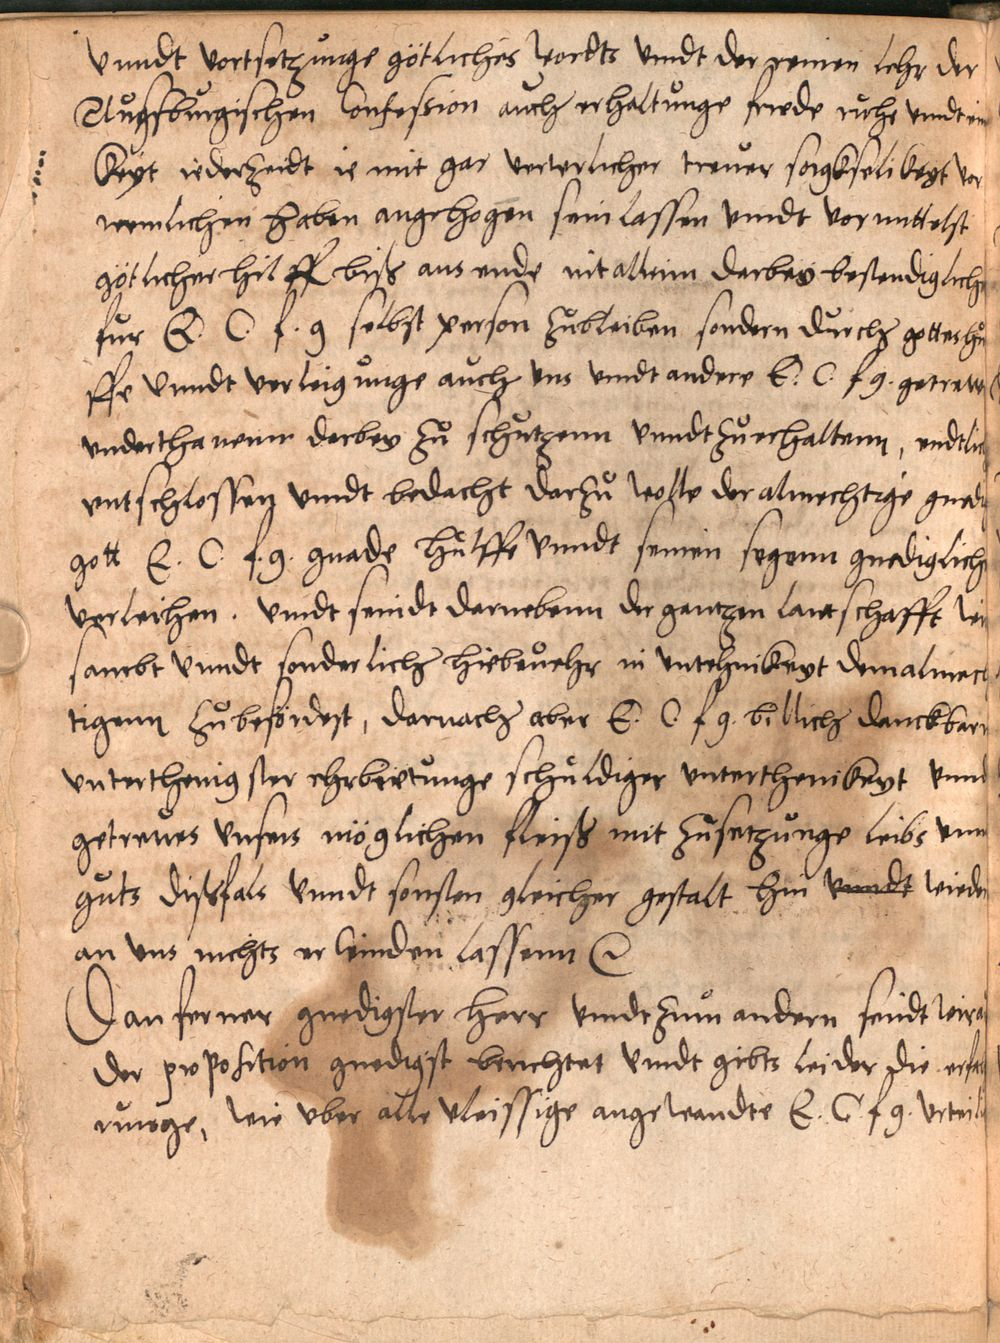 vnndt vortsetzunge götliches wordts vnndt der reinen lehr der
Augsburgischen Confession auch erhaltunge friede ruhe vnndt ein
keyt iederzeidt ie mit gar veterlicher treuer sorgkfelikeyt vor
nemlichen haben angehogen sein lassen vnndt vormittelst
götlicher hilff biß ans ende nit allein darbey bestendiglich
fur E. C. f. g selbst person zubleiben sondern durch gottes hu
lffe vnndt verleigunge auch vns vnndt andere E. C. f g. getrawe
vnderthanenn darbey zu schutzenn vnndt zuerhaltenn, endtlich
entschlossen vnndt bedacht darzu wolle der almechtige gnedig
gott E. C. f. g. gnade hulffe vnndt seinen segenn gnediglich
verleihen. vnndt seindt darnebenn der gantzen lantschafft wir
sambt vnndt sonderlich hirbeuehr in vntehnikeyt dem almech
tigenn zubefördest, darnach aber E. C. f g. billich danckbarr
vnterthenigster ehrbietunge schuldiger vnterthenikeyt vnnd
getrewes vnsers möglichen fleiß mit zusetzunge leibs vnnd
guts dißfals vnndt sonsten gleicher gestalt hin vnndt wieder
an vns nichts erwinden lassenn
Dan ferner gnedigster herr vnndt zum andern seindt wir a
der proposition gnedigst berichtet vnndt gibts leider die erfa
runge, wie vber alle vleissige angewandte E. C f g. veterli